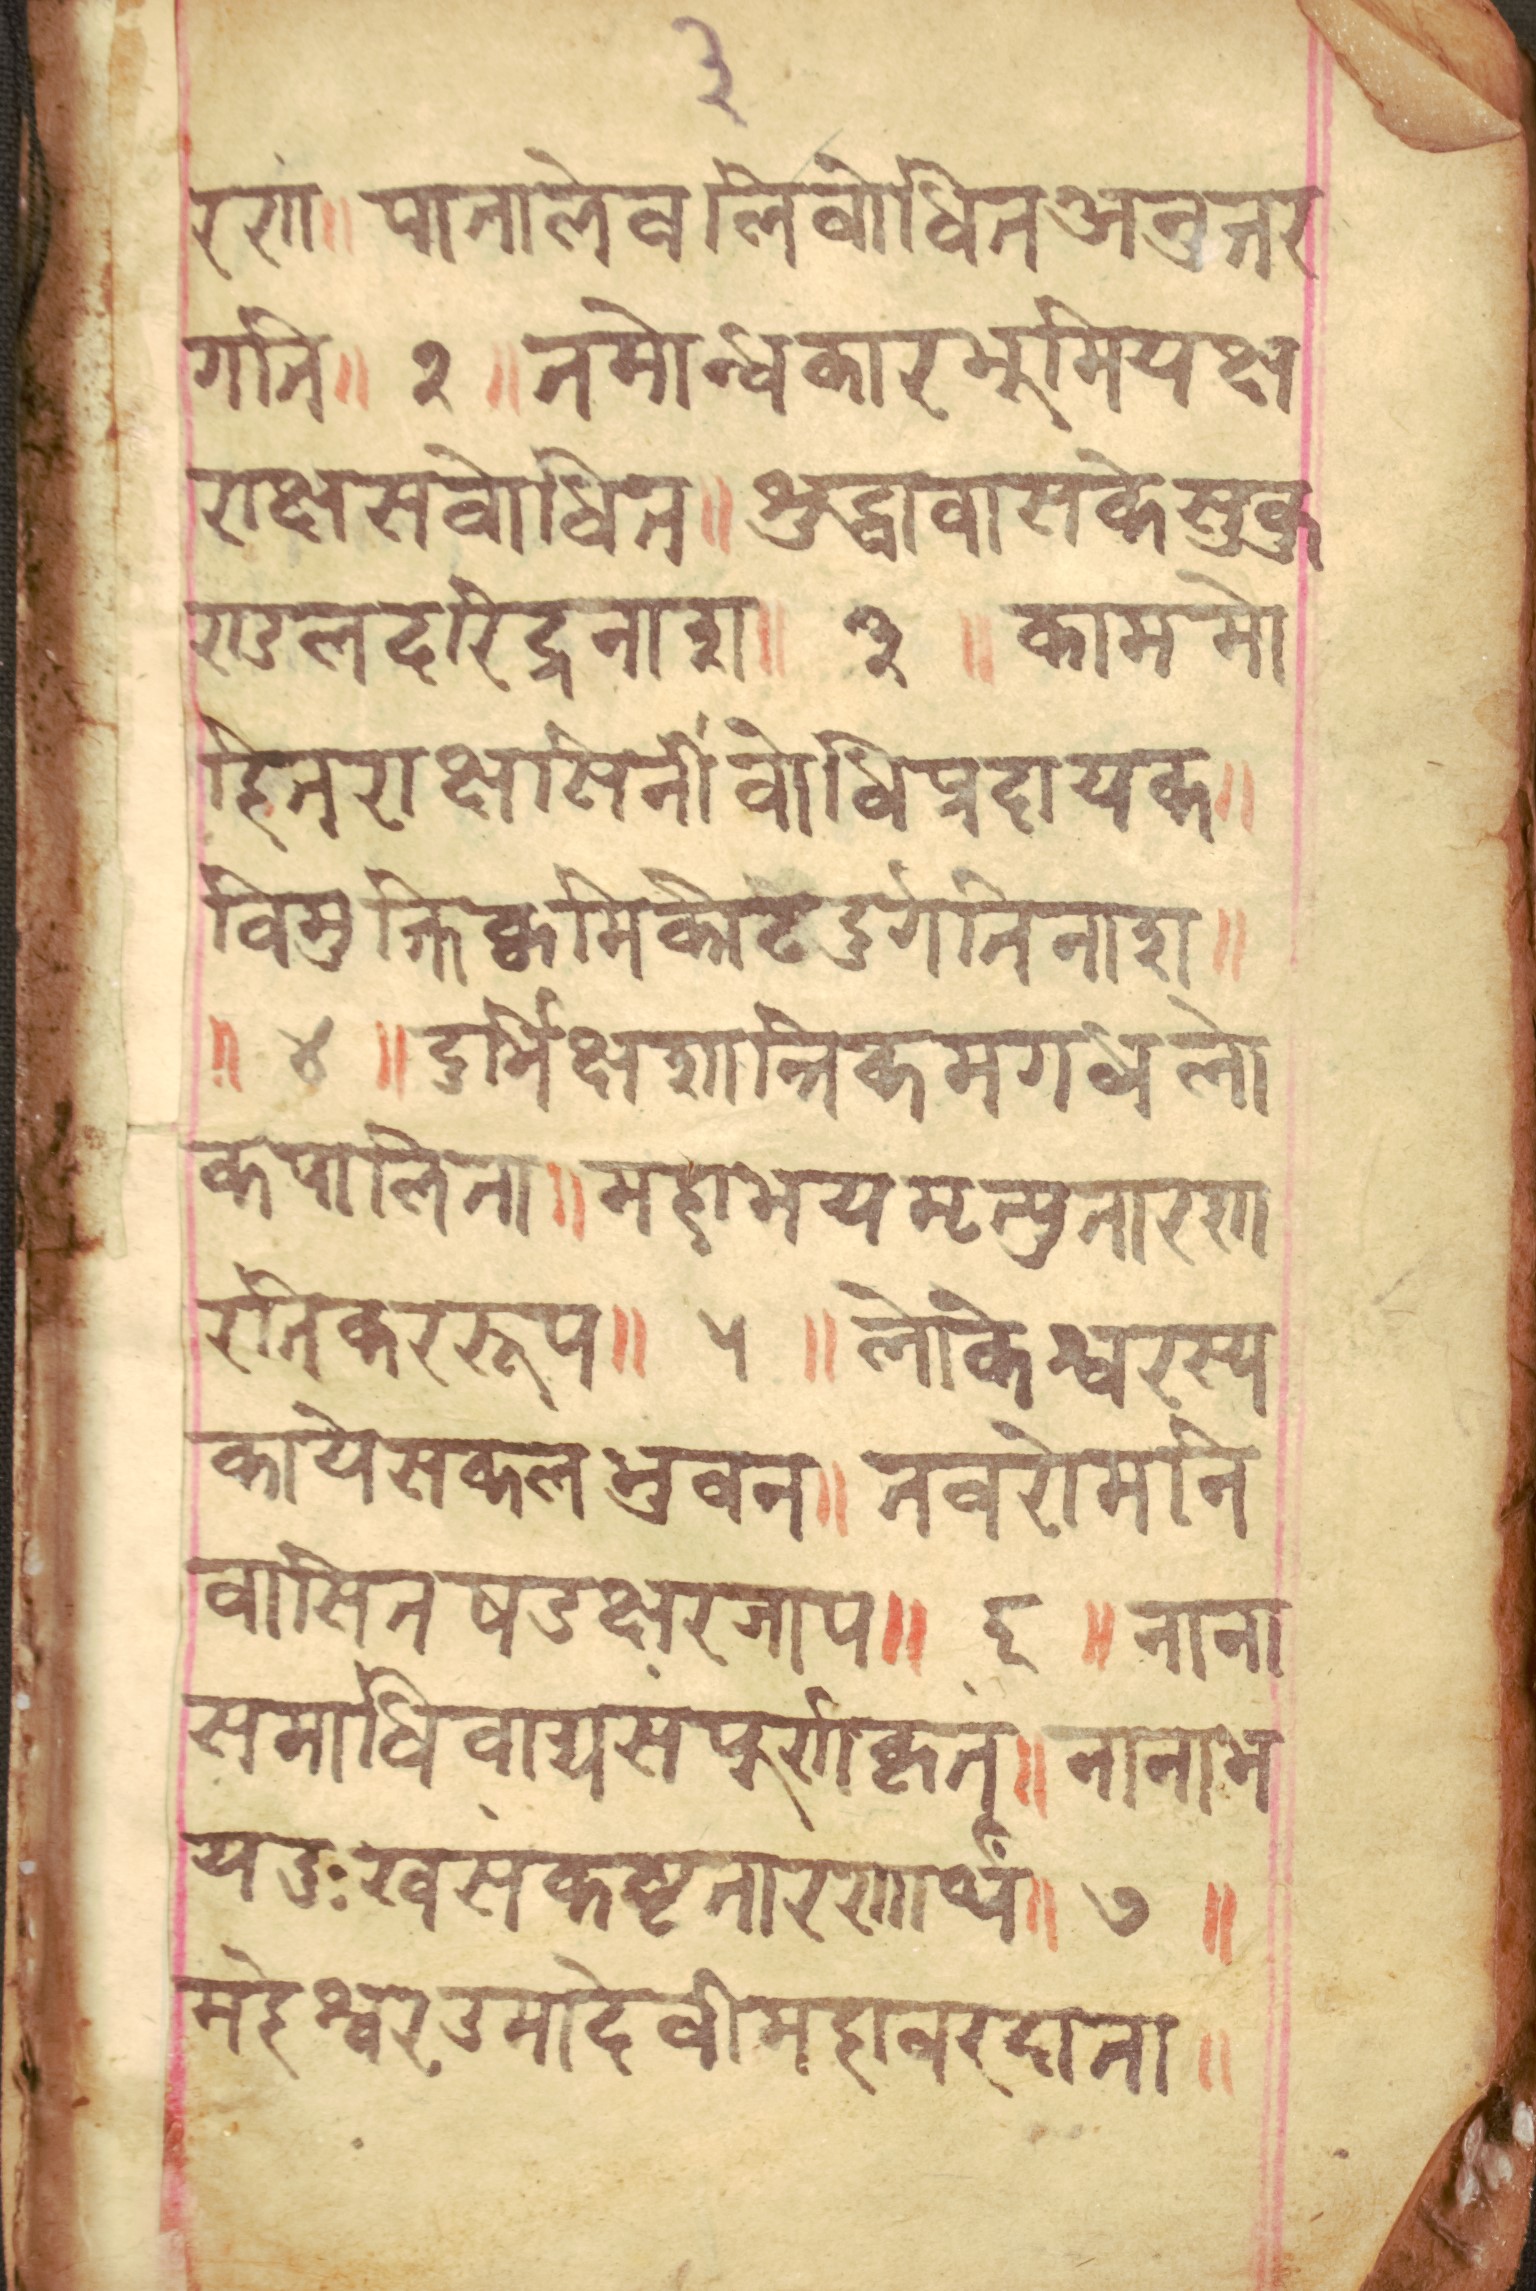 ३
रणा॥ पातालेवलिवोधितअनुत्तर
गति॥ २ ॥ तमोन्धकारभूमियक्ष
राक्षसवोधित॥ शुद्धावासकेसुकु
राउलदरिद्रनाश॥ ३ ॥ काममो
हितराक्षसिनीवोधिप्रदायक॥
विमुक्तिकृमिकीटदुर्गतिनाश॥
॥ ४ ॥ दुर्भिक्षशान्तिकमगधलो
कपालिता॥ महाभयमृत्युतारणा
रतिकररूप॥ ५ ॥ लोकेश्वरस्य
कायेसकलभुवन॥ नवरोमनि
वासितषडक्षरजाप॥ ६ ॥ नाना
समाधिवाद्यसंपूर्णकृतं॥ नानाभ
यदुःखसंकष्टतारणार्थं॥ ७ ॥
महेश्वरउमादेवीमहावरदाता॥